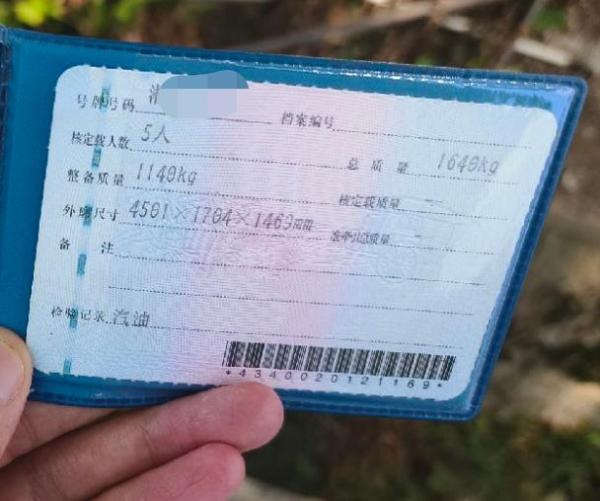 号牌号码
档案编号
核定载人数 5人
总质量 1640kg
整备质量 1140kg
核定载质量 --
外廓尺寸 4501×1704×1469mm
准牵引总质量 --
备注
检验记录 汽油
*4340020121169*